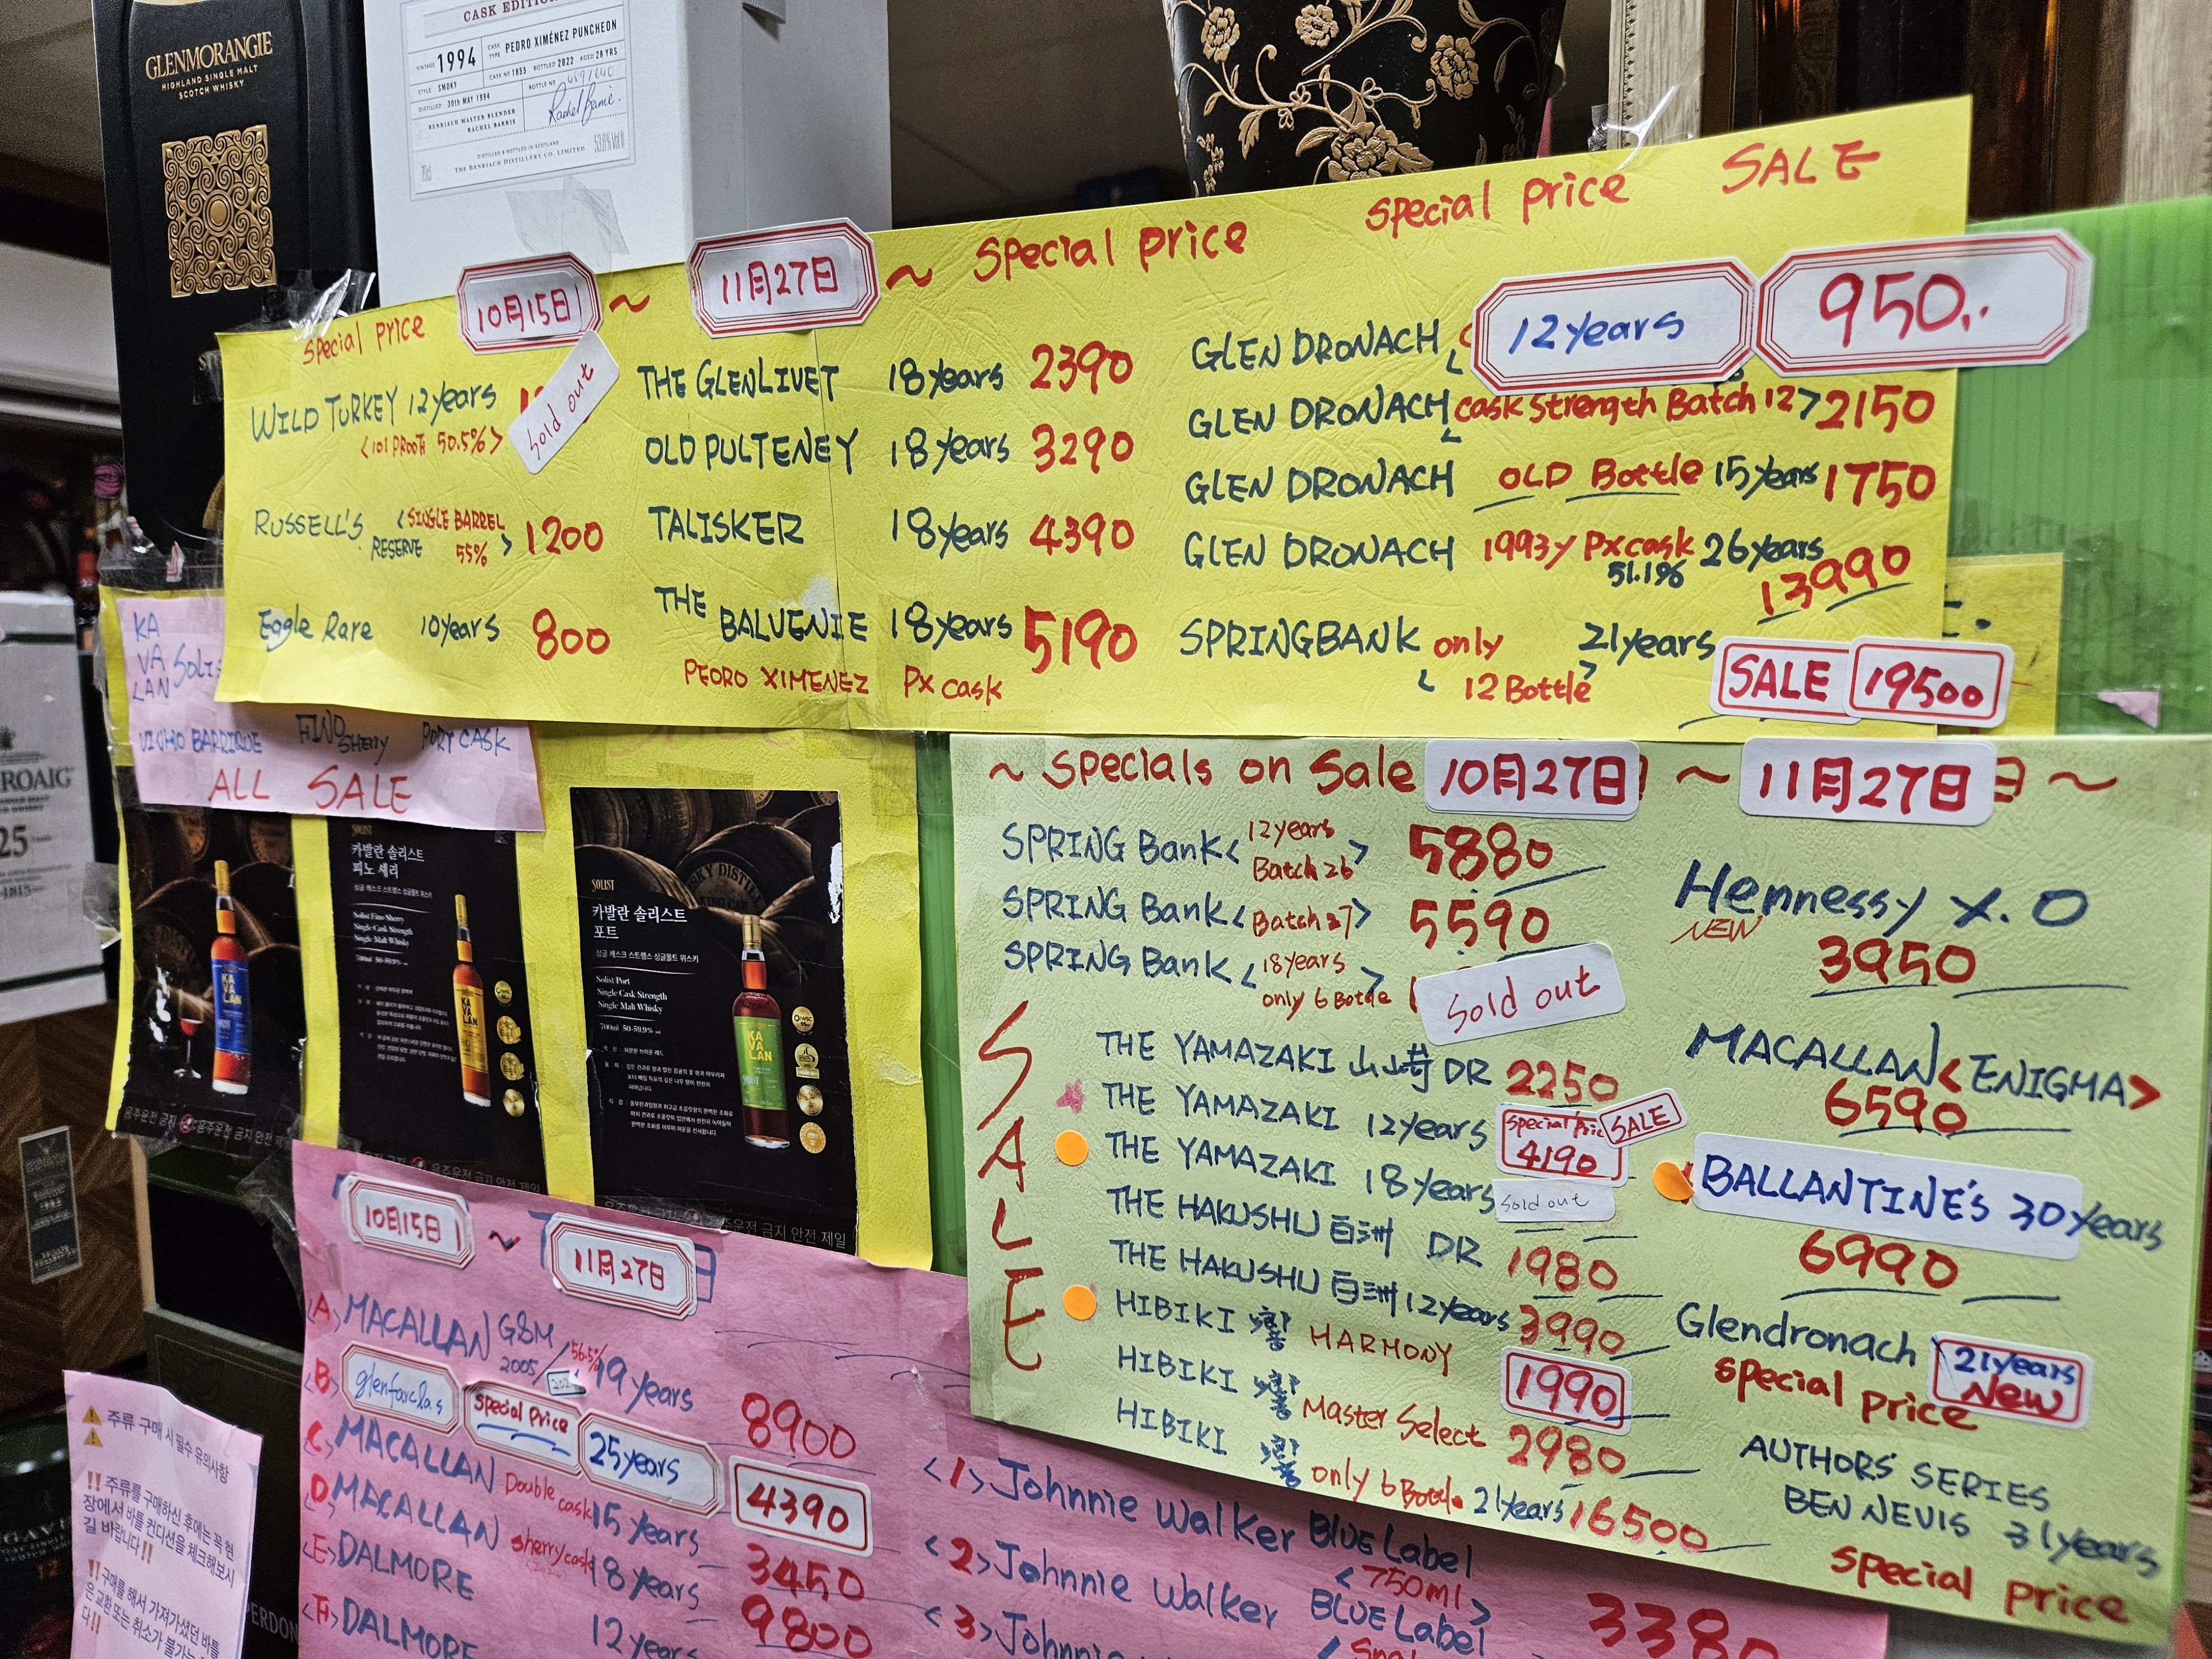 GLENMORANGIE
HIGHLAND SINGLE MALT
SCOTCH WHISKY
CASK EDITION
VINTAGE 1994 CASK TYPE PEDRO XIMÉNEZ PUNCHEON
CASK Nº 1855 BOTTLED 2022 AGED 28 YRS
STYLE SMOKY BOTTLE Nº
DISTILLED 20th MAY 1994
BENRIACH MASTER BLENDER
RACHEL BARRIE
DISTILLED & BOTTLED IN SCOTLAND
THE BENRIACH DISTILLERY CO. LIMITED
70cl
special price 10月15日 ~ 11月27日 ~ special price special price SALE
WILD TURKEY 12years sold out
<101 PROOF 50.5%>
RUSSELL'S RESERVE <SINGLE BARREL 55%> 1200
Eagle Rare 10years 800
THE GLENLIVET 18years 2390
OLD PULTENEY 18years 3290
TALISKER 18years 4390
THE BALVENIE 18years 5190
PEDRO XIMENEZ PX cask
GLEN DRONACH 12years 950
GLEN DRONACH <cask strength Batch 12> 2150
GLEN DRONACH OLD Bottle 15years 1750
GLEN DRONACH 1993y Px cask 51.1% 26years 13990
SPRINGBANK <only 12 Bottle> 21years SALE 19500
KA
VA
LAN
VINHO BARRIQUE FINO SHERRY PORT CASK
ALL SALE
ROAIG
25
1815
SOLIST
카발란 솔리스트
피노 셰리
싱글 캐스크 스트렝스 싱글몰트 위스키
Solist Fino Sherry
Single Cask Strength
Single Malt Whisky
KA
VA
LAN
SOLIST
카발란 솔리스트
포트
싱글 캐스크 스트렝스 싱글몰트 위스키
Solist Port
Single Cask Strength
Single Malt Whisky
700ml 50-59.9%
KA
VA
LAN
음주운전 금지 안전 제일
~ specials on sale 10月27日 ~ 11月27日 ~
SPRING Bank <12years Batch 26> 5880
SPRING Bank <Batch 27> 5590
SPRING Bank <18years only 6 Bottle> sold out
SALE
THE YAMAZAKI 山崎 DR 2250
THE YAMAZAKI 12years special price SALE 4190
THE YAMAZAKI 18years sold out
THE HAKUSHU 白洲 DR 1980
THE HAKUSHU 白洲 12years 3990
HIBIKI 響 HARMONY 1990
HIBIKI 響 Master Select 2980
HIBIKI 響 only 6 Bottle 21years 16500
Hennessy X.O
NEW 3950
MACALLAN <ENIGMA>
6590
BALLANTINE'S 30years
6990
Glendronach 21years NEW
special price
AUTHORS' SERIES
BEN NEVIS 31years
special price
10月15日 ~ 11月27日
<A> MACALLAN G&M 2005/56.5% 19years 8900
<B> glenfarclas special price 25years 4390
<C> MACALLAN Double cask 15years 3450
<D> MACALLAN sherry cask 18years 9800
<E> DALMORE 12years
<F> DALMORE
<1> Johnnie Walker Blue Label
<750ml>
<2> Johnnie Walker BLUE Label 3380
<3>
⚠ 주류 구매 시 필수 유의사항
⚠
!! 주류를 구매하신 후에는 꼭 현
장에서 바틀 컨디션을 체크해보시
길 바랍니다!!
!! 구매를 해서 가져가셨던 바틀
은 교환 또는 취소가 불가
다!!